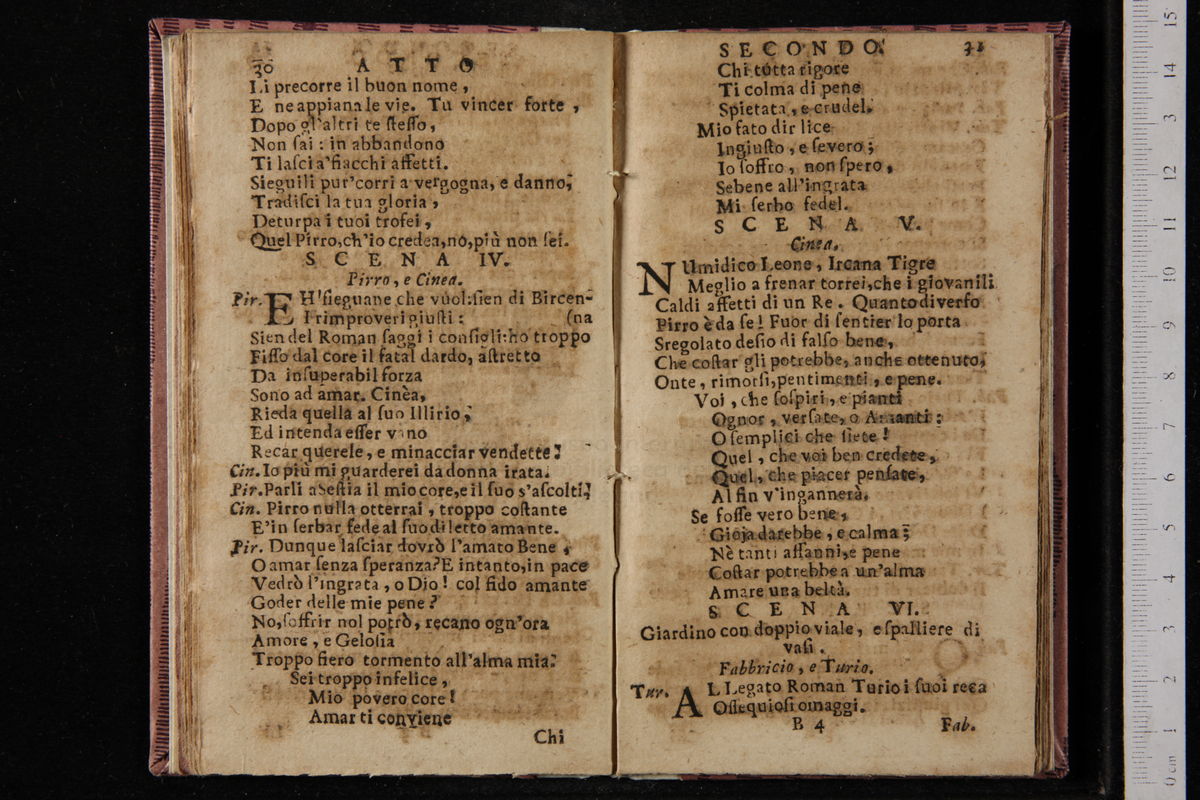 30 ATTO
Li precorre il buon nome,
E ne appiana le vie. Tu vincer forte,
Dopo gl'altri te ſteſſo,
Non ſai: in abbandono
Ti laſci a' fiacchi affetti.
Sieguili pur' corri a vergogna, e danno;
Tradiſci la tua gloria,
Deturpa i tuoi trofei,
Quel Pirro, ch'io credea, nò, più non ſei.
SCENA IV.
Pirro, e Cinea.
Pir. EH' ſieguane che vuol: ſien di Bircen-
I rimproveri giuſti: (na
Sien del Roman ſaggi i conſigli: ho troppo
Fiſſo dal core il fatal dardo, aſtretto
Da inſuperabil forza
Sono ad amar. Cinèa,
Rieda quella al ſuo Illirio,
Ed intenda eſſer vano
Recar querele, e minacciar vendette.
Cin. Io più mi guarderei da donna irata.
Pir. Parli a Seſtia il mio core, e il ſuo s'aſcolti.
Cin. Pirro nulla otterrai, troppo coſtante
E' in ſerbar fede al ſuo diletto amante.
Pir. Dunque laſciar dovrò l'amato Bene,
O amar ſenza ſperanza? E intanto, in pace
Vedrò l'ingrata, o Dio! col fido amante
Goder delle mie pene?
No, ſoffrir nol potrò, recano ogn'ora
Amore, e Geloſia
Troppo fiero tormento all'alma mia.
Sei troppo infelice,
Mio povero core!
Amar ti conviene
Chi
SECONDO. 31
Chi tutta rigore
Ti colma di pene
Spietata, e crudel.
Mio fato dir lice
Ingiuſto, e ſevero;
Io ſoffro, non ſpero,
Sebene all'ingrata
Mi ſerbo fedel.
SCENA V.
Cinea.
NUmidico Leone, Ircana Tigre
Meglio a frenar torrei, che i giovanili
Caldi affetti di un Re. Quanto diverſo
Pirro è da ſe! Fuor di ſentier lo porta
Sregolato deſio di falſo bene,
Che coſtar gli potrebbe, anche ottenuto,
Onte, rimorſi, pentimenti, e pene.
Voi, che ſoſpiri, e pianti
Ognor, verſate, o Amanti:
O ſemplici che ſiete!
Quel, che voi ben credete,
Quel, che piacer penſate,
Al fin v'ingannerà.
Se foſſe vero bene,
Gioja darebbe, e calma;
Nè tanti affanni, e pene
Coſtar potrebbe a un'alma
Amare una beltà.
SCENA VI.
Giardino con doppio viale, e ſpalliere di
vaſi.
Fabbricio, e Turio.
Tur. AL Legato Roman Turio i ſuoi reca
Oſſequioſi omaggi.
B 4 Fab.
0 cm 1 2 3 4 5 6 7 8 9 10 11 12 3 14 15